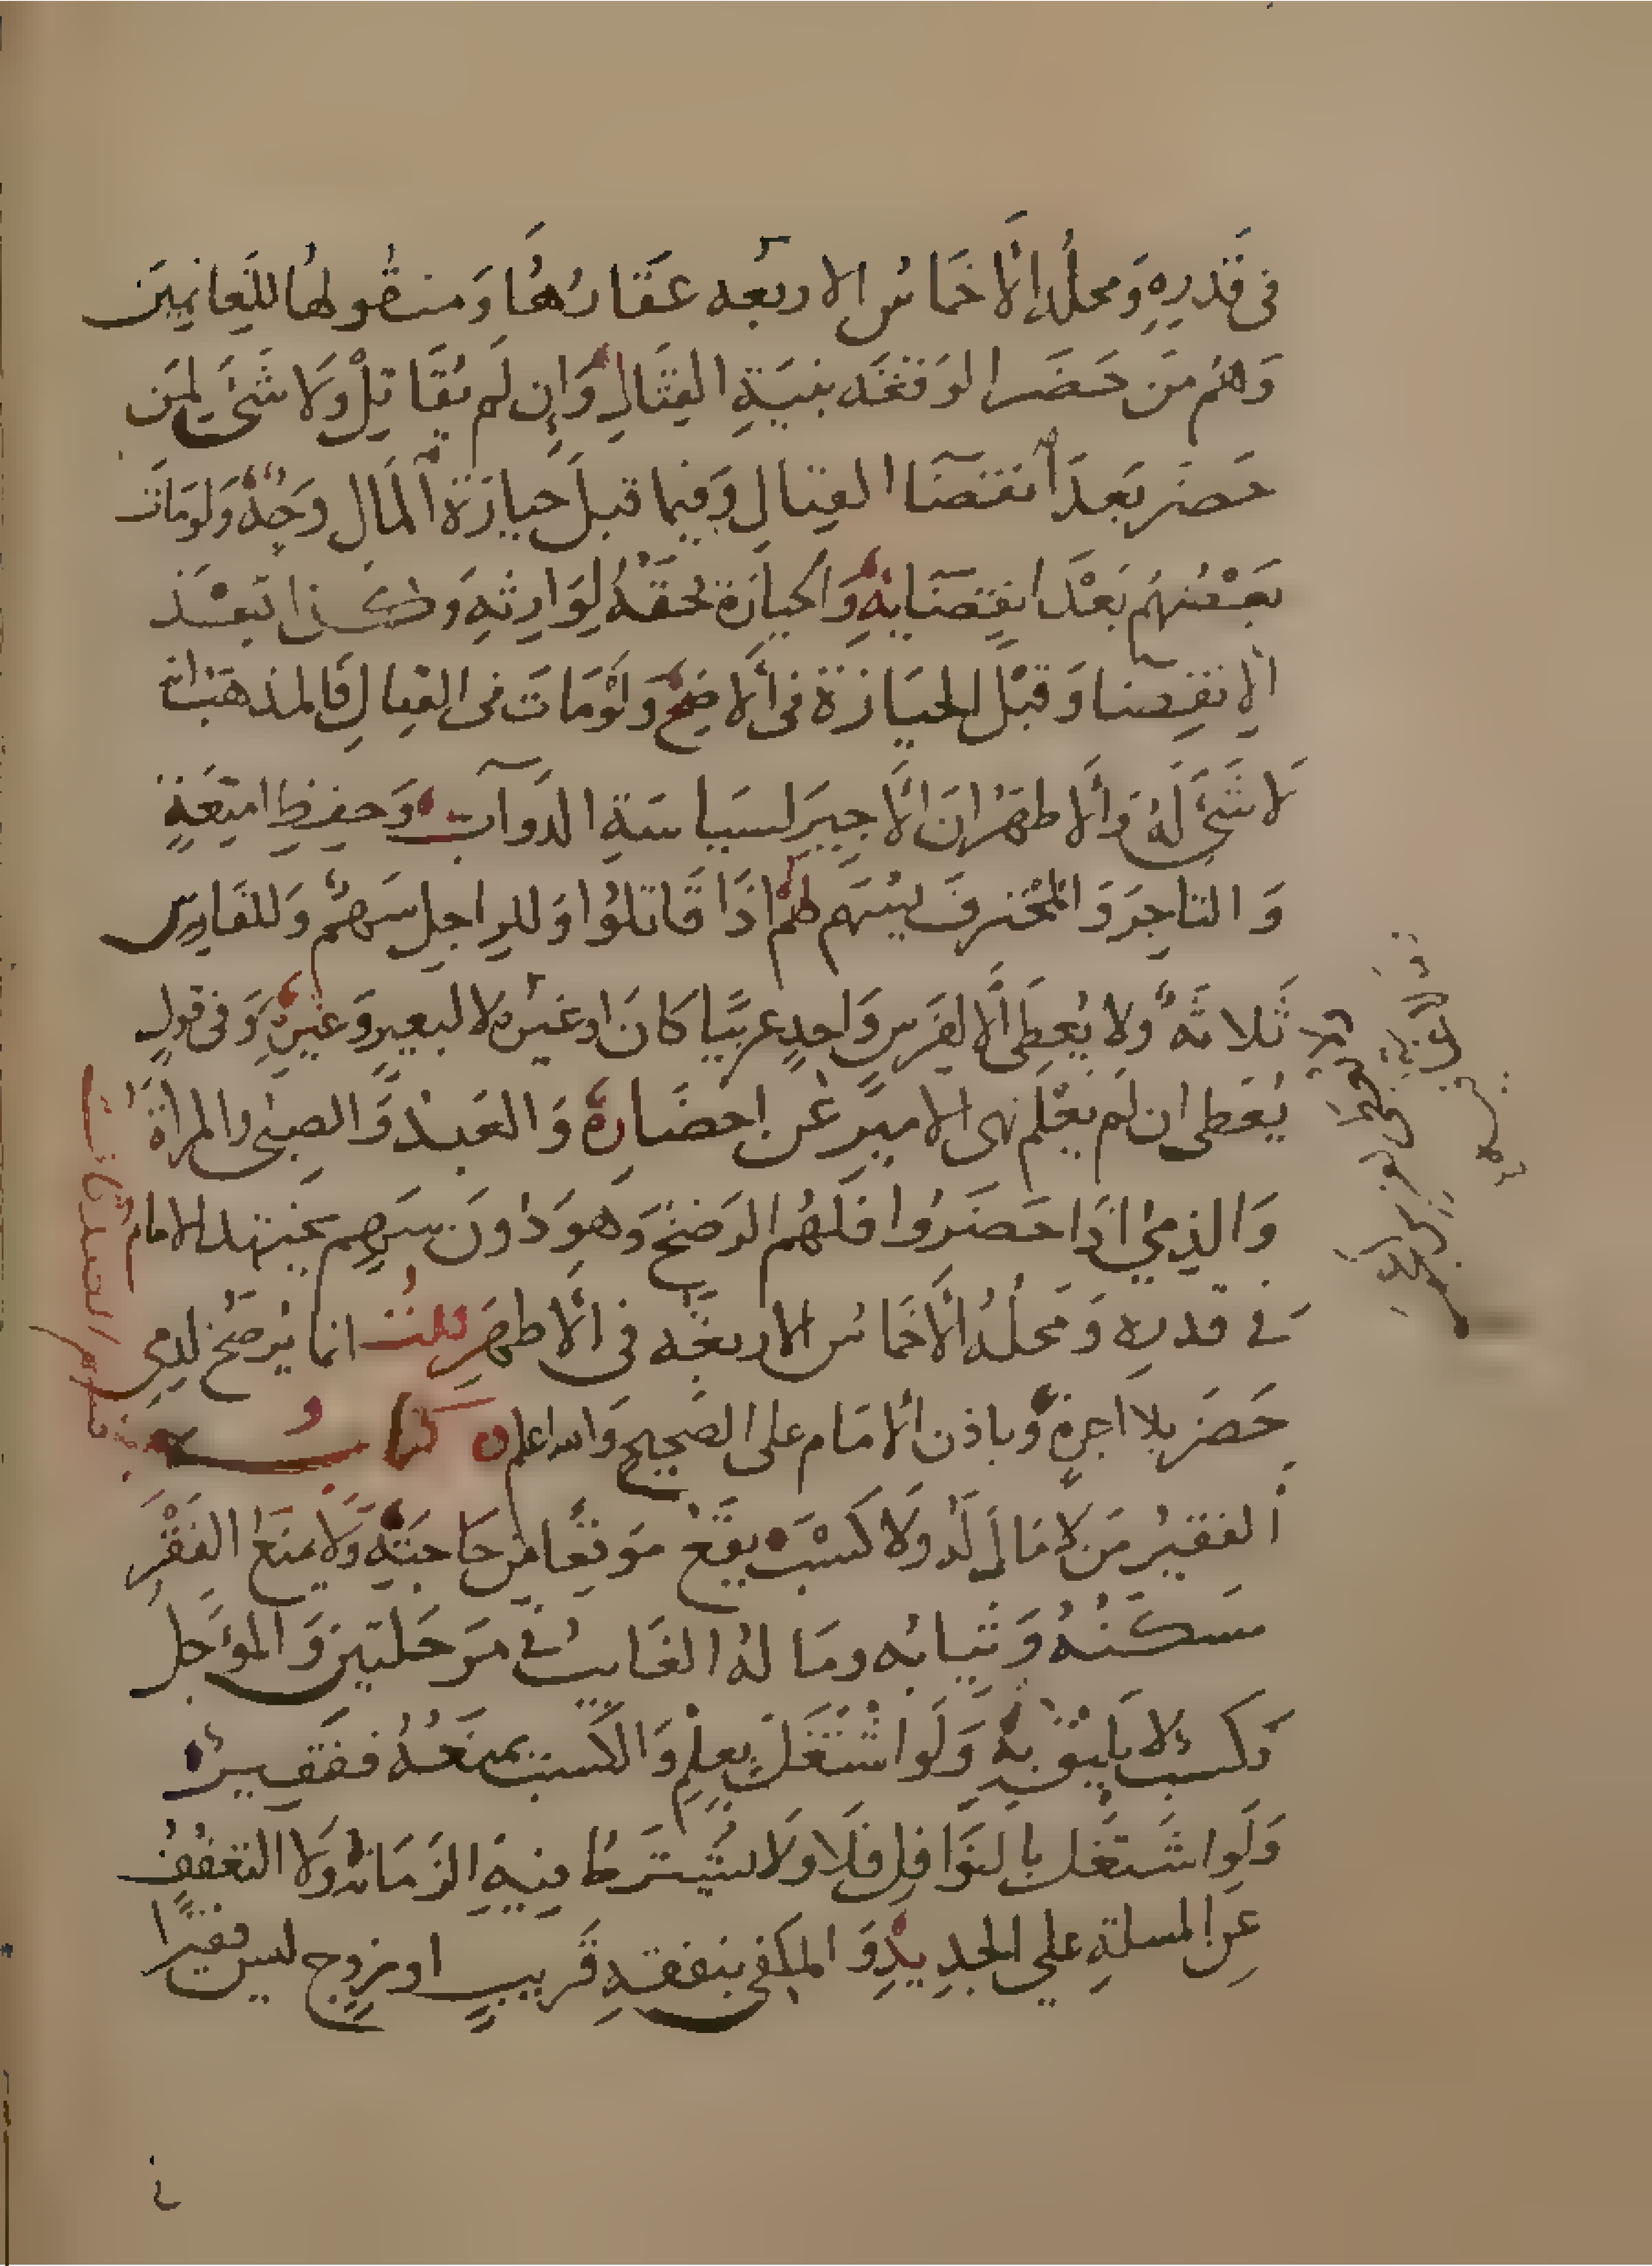 في قدره ومحله الاخماس الاربعه عقارها ومنقولها للغانمين
وهم من حضر الوقعه بنية القتال وان لم يقاتل ولا شئ لمن
حضر بعد انقضا القتال وفيما قبل حيازة المال وجه ولو مات
بعضهم بعد انقضايه والحيازة فحقه لوارثه وكذا بعد
الانقضا وقبل الحيازة في الاصح ولو مات في القتال فالمذهب انه
لا شئ له والاظهر ان الاجير لسياسة الدوآب وحفظ امتعة
والتاجر والمحترف يسهم لهم اذا قاتلوا وللراجل سهم وللفارس
ثلاثه ولا يعطى الا لفرس واحد عربيا كان او غيره لا لبعير وغيره وفي قول
يعطى ان لم يعلم نهى الامير عن احضاره والعبد والصبي والمراة
والذمي اذا حضروا فلهم الرضخ وهو دون سهم يجتهد الامام
في قدره ومحله الاخماس الاربعه في الاظهر قلت انما يرضخ لذمي
حضر بلا اجرة وباذن الامام على الصحيح والله اعلم كتاب
الفقير من لا مال له ولا كسب يقع موقعا من حاجته ولا يمنع الفقر
مسكنه وثيابه وماله الغايب في مرحلتين والموجل
وكسب لا يليق به ولو اشتغل بعلم والكسب يمنعه ففقير
ولو اشتغل بالنوافل فلا ولا يشترط فيه الزمانه ولا التعفف
عن المسلة على الجديد والمكفى بنفقه قريب او زوج ليس فقيرا